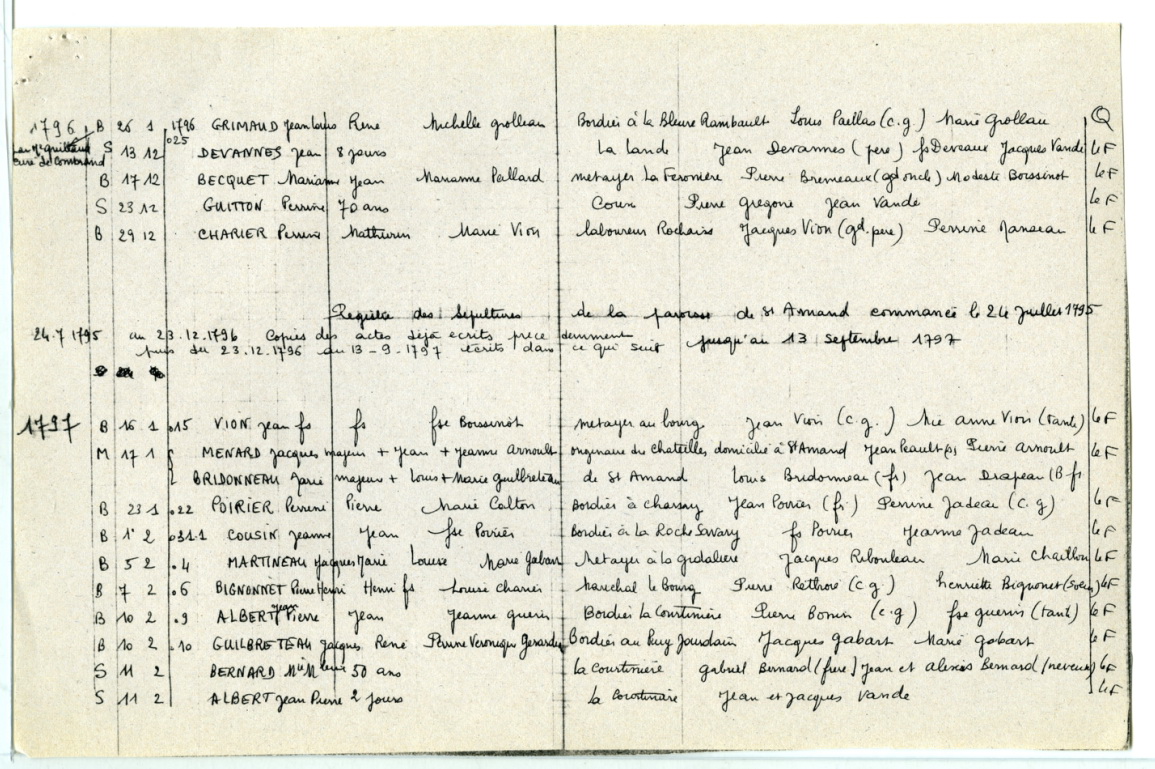 1796 B 26 1 1796 GRIMAUD Jean Louis René Michelle grolleau Bordier à la Bleure Rambault Louis Paillas (c.g) Marie Grolleau Q
025
curé de Combrand S 13 12 DEVANNES Jean 8 jours La Lande Jean Devannes (père) fs Deveaux Jacques Vande le F
B 17 12 BECQUET Marianne Jean Marianne Paillard metayer La Feronière Pierre Bremeaux (gd oncle) Modeste Boissinot le F
S 23 12 GUITTON Perrine 70 ans Coux Pierre gregoire Jean Vande le F
B 29 12 CHARIER Perrine Mathurin Marie Vion laboureur Rochairs Jacques Vion (gd. père) Perrine Manseau le F
Registre des Sépultures de la paroisse de St Amand commancé le 24 juillet 1795
24.7 1795 au 23.12.1796 Copies des actes déjà écrits précédemment jusqu'au 13 septembre 1797
puis du 23.12.1796 au 13-9-1797 écrits dans ce qui suit
1797 B 16 1 .15 VION Jean fs fs fse Boissinot metayer au bourg Jean Vion (c.g.) Mie anne Vion (tante) le F
M 17 1 MENARD Jacques majeur + Jean + Jeanne Arnoult originaire du chatelles domicilié à St Amand Jean Rault Pierre Arnoult le F
BRIDONNEAU Marie majeur + Louis + Marie guilbreteau de St Amand Louis Bridonneau (fr) Jean Drapeau (B fr
B 23 1 .22 POIRIER Perrine Pierre Marie Calton Bordier à charsay Jean Poirier (fr.) Perrine Jadeau (c.g) le F
B 1° 2 .031.1 COUSIN Jeanne Jean fse Poirier Bordier à la Roche Savary fs Poirier Jeanne Jadeau le F
B 5 2 .4 MARTINEAU Jacques Marie Louise Marie Gabard Metayer à la gidalière Jacques Ribouleau Marie Chaillon le F
B 7 2 .6 BIGNONNET Pierre Henri Henri fs Louise charier Marechal le Bourg Pierre Rethoré (c g) henriette Bignonet (Soeur) le F
B 10 2 .9 ALBERT Jean Pierre Jean Jeanne guerin Bordier La Courtinière Pierre Bonnin (c.g) fse guerin (tant) le F
B 10 2 .10 GUILBRETEAU Jacques René Perrine Veronique Gerardin Bordier au Puy Jourdain Jacques gabart Marie gabart le F
S 11 2 BERNARD 50 ans la Courtinière gabriel Bernard (frère) Jean et alexis Bernard (neveux) le F
S 11 2 ALBERT Jean Pierre 2 jours la Courtinière Jean et Jacques Vande le F